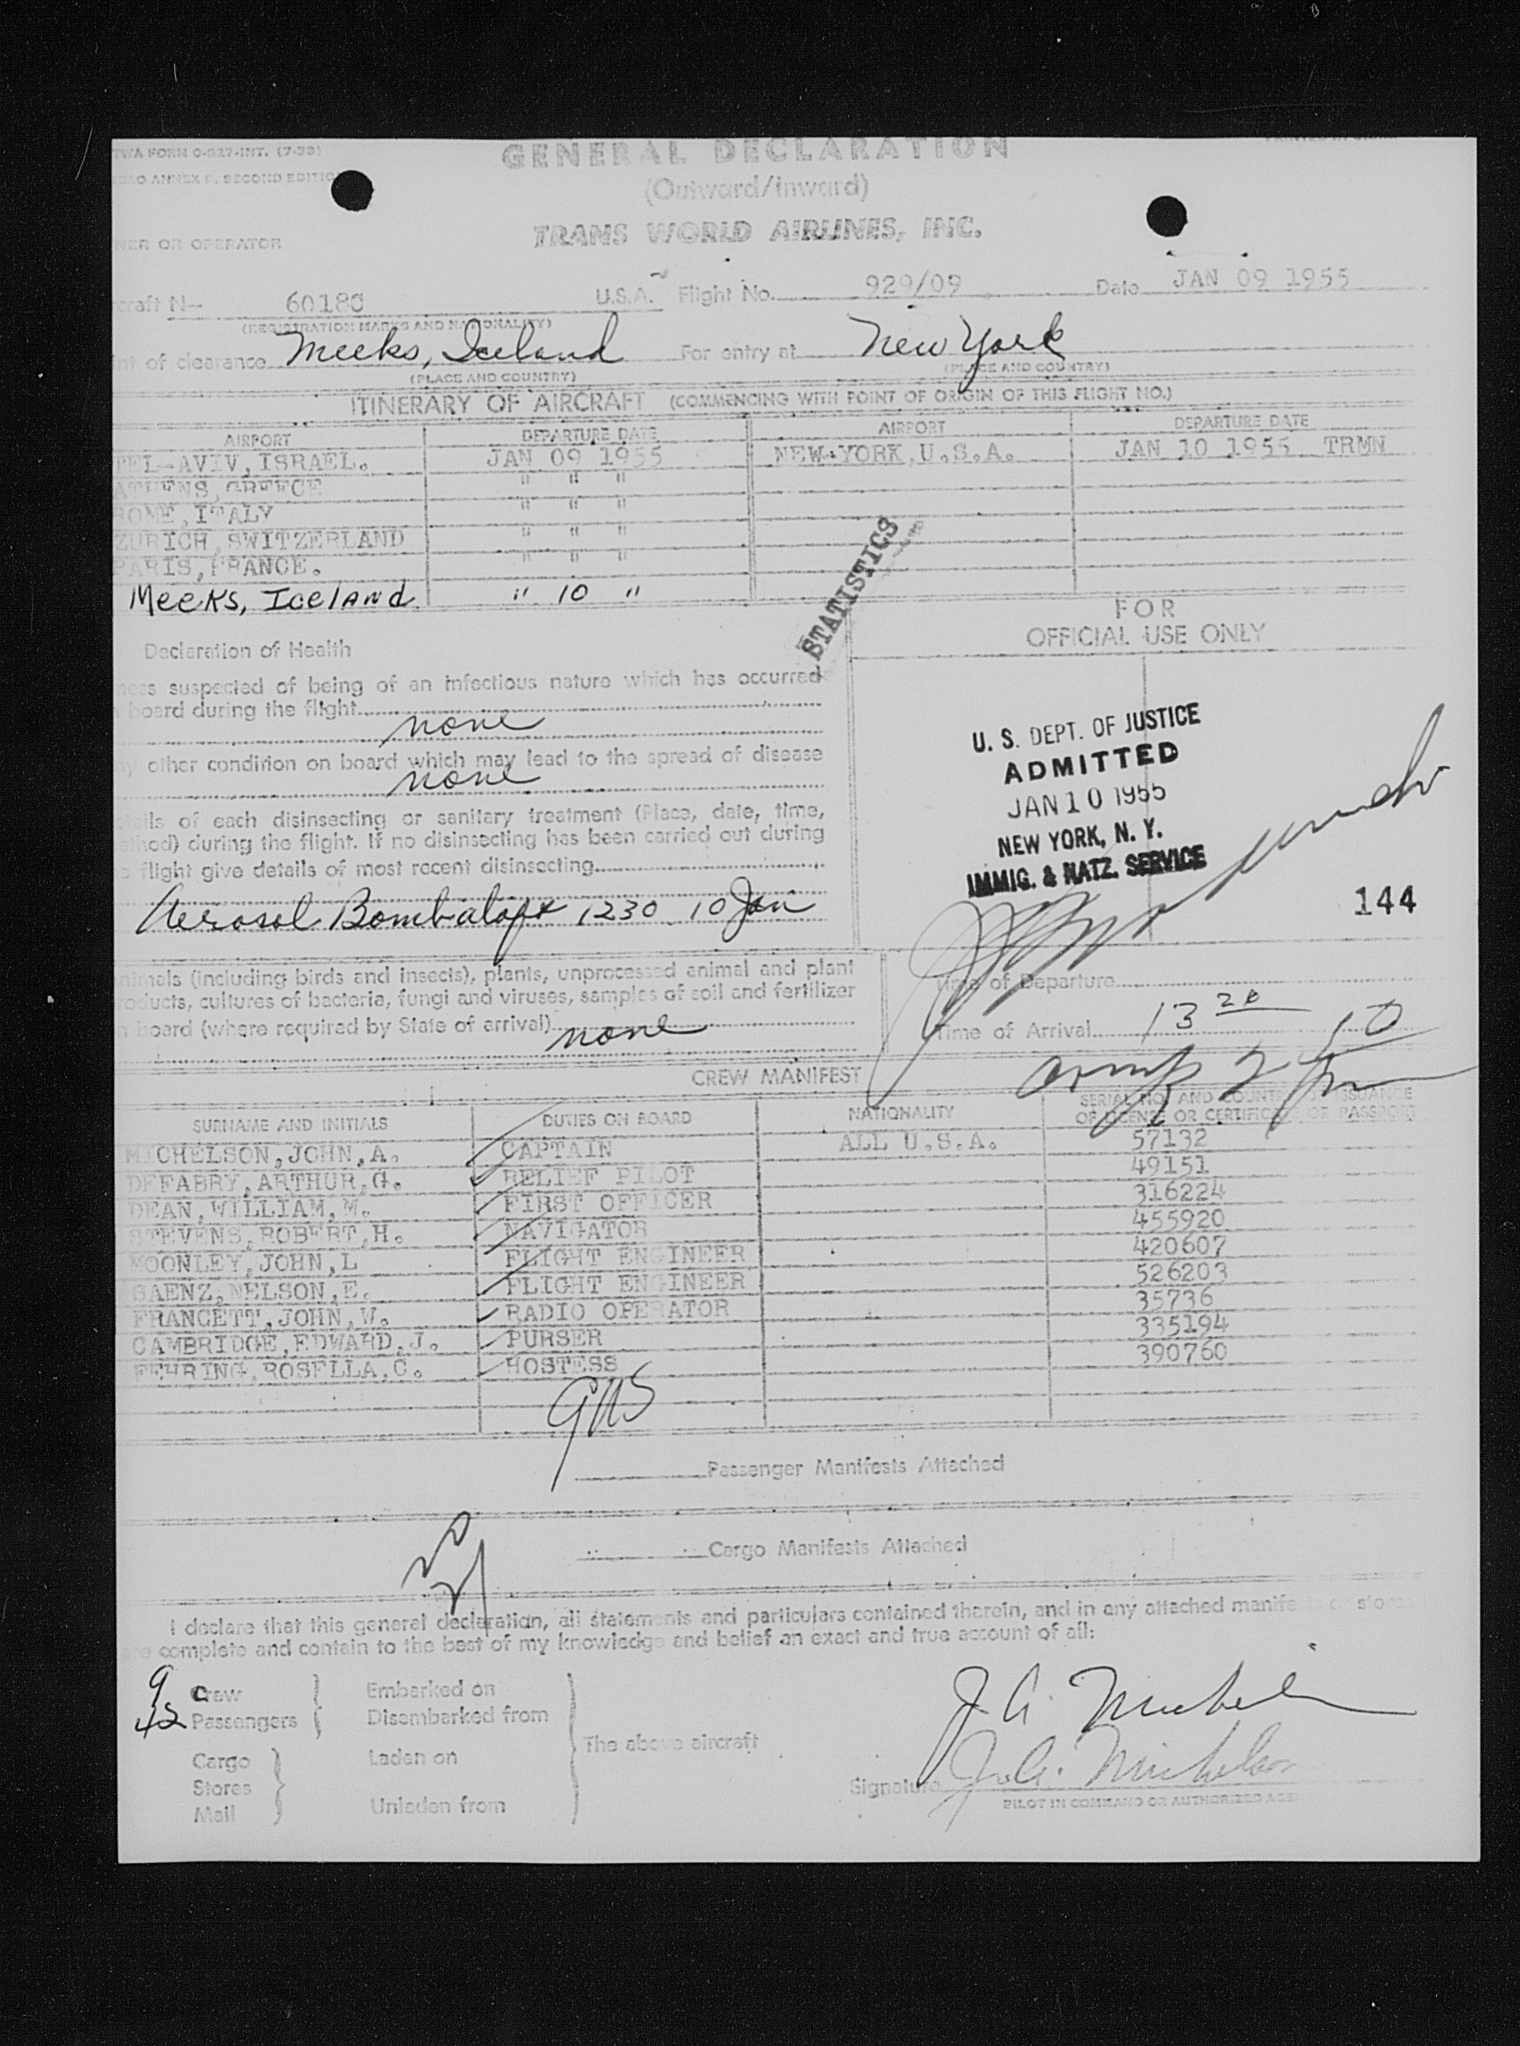 TWA FORM O-827-INT.
ICAO ANNEX 9, SECOND EDITION
GENERAL DECLARATION
(Outward/Inward)
TRANS WORLD AIRLINES, INC.
NER OR OPERATOR
craft N- 6018C U.S.A. Flight No. 929/09 Date JAN 09 1955
(REGISTRATION MARKS AND NATIONALITY)
nt of clearance Meeks, Iceland For entry at New York
(PLACE AND COUNTRY) (PLACE AND COUNTRY)
ITINERARY OF AIRCRAFT (COMMENCING WITH POINT OF ORIGIN OF THIS FLIGHT NO.)
AIRPORT DEPARTURE DATE AIRPORT DEPARTURE DATE
TEL-AVIV, ISRAEL. JAN 09 1955 NEW YORK, U.S.A. JAN 10 1955 TRMN
ATHENS, GREECE " " "
ROME, ITALY " " "
ZURICH, SWITZERLAND " " "
PARIS, FRANCE. " " "
Meeks, Iceland " 10 "
STATISTICS
FOR
OFFICIAL USE ONLY
Declaration of Health
ness suspected of being of an infectious nature which has occurred
n board during the flight
none
ny other condition on board which may lead to the spread of disease
none
tails of each disinsecting or sanitary treatment (Place, date, time,
ethod) during the flight. If no disinsecting has been carried out during
e flight give details of most recent disinsecting
Aerosol Bomb 1230 10 Jan
U. S. DEPT. OF JUSTICE
ADMITTED
JAN 10 1955
NEW YORK, N. Y.
IMMIG. & NATZ. SERVICE
144
nimals (including birds and insects), plants, unprocessed animal and plant
roducts, cultures of bacteria, fungi and viruses, samples of soil and fertilizer
n board (where required by State of arrival) none
Time of Departure
Time of Arrival 13 20
CREW MANIFEST
SURNAME AND INITIALS DUTIES ON BOARD NATIONALITY SERIAL NO. AND COUNTRY OF ISSUANCE
OF LICENSE OR CERTIFICATE OR PASSPORT
MICHELSON, JOHN, A. CAPTAIN ALL U.S.A. 57132
DEFABRY, ARTHUR, G. RELIEF PILOT 49151
DEAN, WILLIAM, M. FIRST OFFICER 316224
STEVENS, ROBERT, H. NAVIGATOR 455920
MOONLEY, JOHN, L FLIGHT ENGINEER 420607
SAENZ, NELSON, E. FLIGHT ENGINEER 526203
FRANCETT, JOHN, W. RADIO OPERATOR 35736
CAMBRIDGE, EDWARD, J. PURSER 335194
FEHRING, ROSELLA, C. HOSTESS 390760
Passenger Manifests Attached
Cargo Manifests Attached
I declare that this general declaration, all statements and particulars contained therein, and in any attached manife
are complete and contain to the best of my knowledge and belief an exact and true account of all:
9 Crew Embarked on
42 Passengers Disembarked from
The above aircraft
Cargo Laden on
Stores
Mail Unladen from
J. A. Michelson
Signature J. A. Michelson
PILOT IN COMMAND OR AUTHORIZED AGE